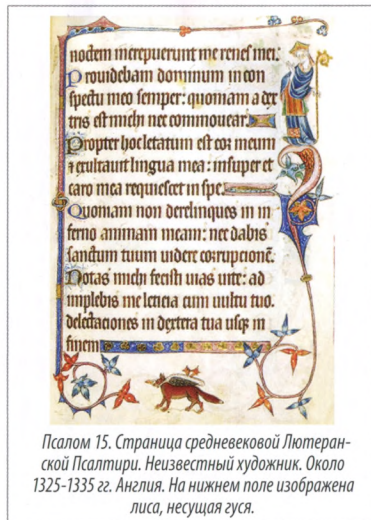 noctem increpuerunt me renes mei:
Prouidebam dominum in con
spectu meo semper: quoniam a dex
tris est michi ne commouear.
Propter hoc letatum est cor meum
⁊ exultauit lingua mea: insuper et
caro mea requiescet in spe.
Quoniam non derelinques in in
ferno animam meam: nec dabis
sanctum tuum uidere corrupcionē.
Notas michi fecisti uias uite: ad
implebis me leticia cum uultu tuo.
delectaciones in dextera tua usqꝫ in
finem
Псалом 15. Страница средневековой Лютеран-
ской Псалтири. Неизвестный художник. Около
1325-1335 гг. Англия. На нижнем поле изображена
лиса, несущая гуся.